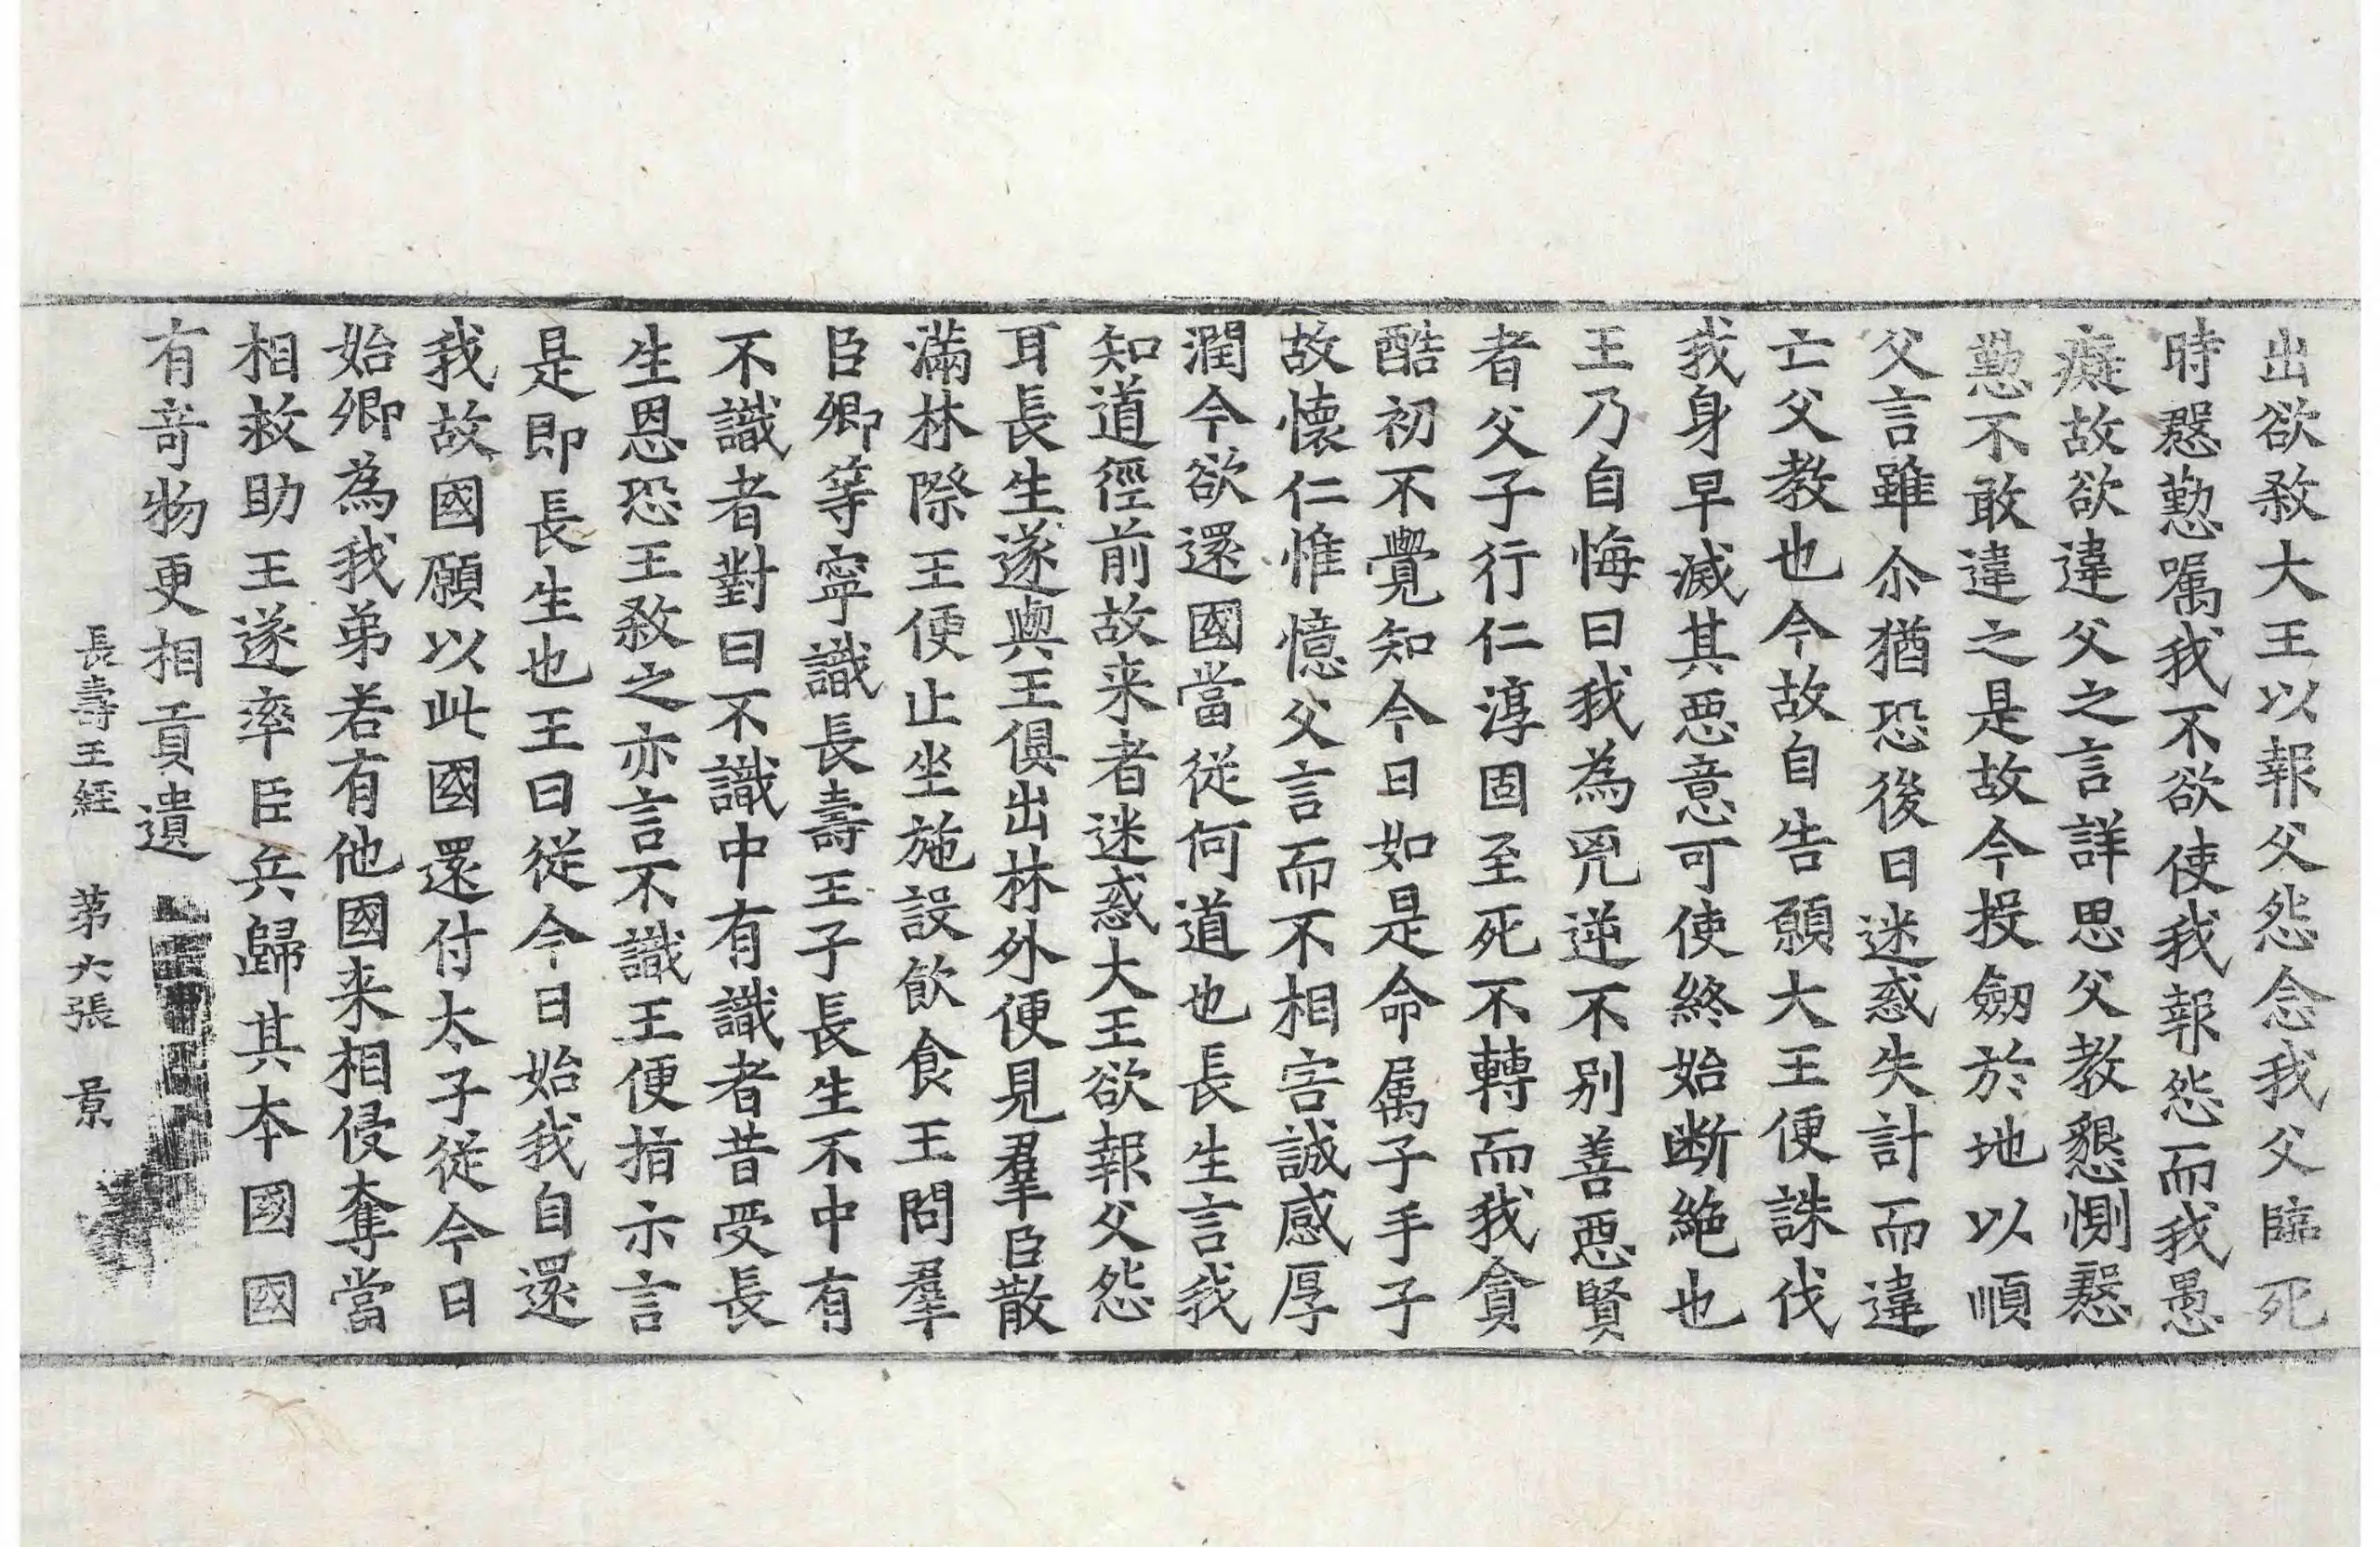 出欲殺大王以報父怨念我父臨死
時慇懃嘱我不欲使我報怨而我愚
癡故欲違父之言詳思父教懇惻慇
懃不敢違之是故今投劒於地以順
父言雖尒猶恐後日迷惑失計而違
亡父教也今故自告願大王便誅伐
我身早滅其惡意可使終始断絶也
王乃自悔曰我為兇逆不別善惡賢
者父子行仁淳固至死不轉而我貪
酷初不覺知今日如是命属子手子
故懷仁惟憶父言而不相害誠感厚
潤今欲還國當從何道也長生言我
知道徑前故来者迷惑大王欲報父怨
耳長生遂與王俱出林外便見羣臣散
滿林際王便止坐施設飲食王問羣
臣卿等寧識長壽王子長生不中有
不識者對曰不識中有識者昔受長
生恩恐王殺之亦言不識王便指示言
是即長生也王曰從今日始我自還
我故國願以此國還付太子從今日
始卿為我弟若有他國来相侵奪當
相救助王遂率臣兵歸其本國國
有竒物更相貢遺
長壽王經 苐六張 景